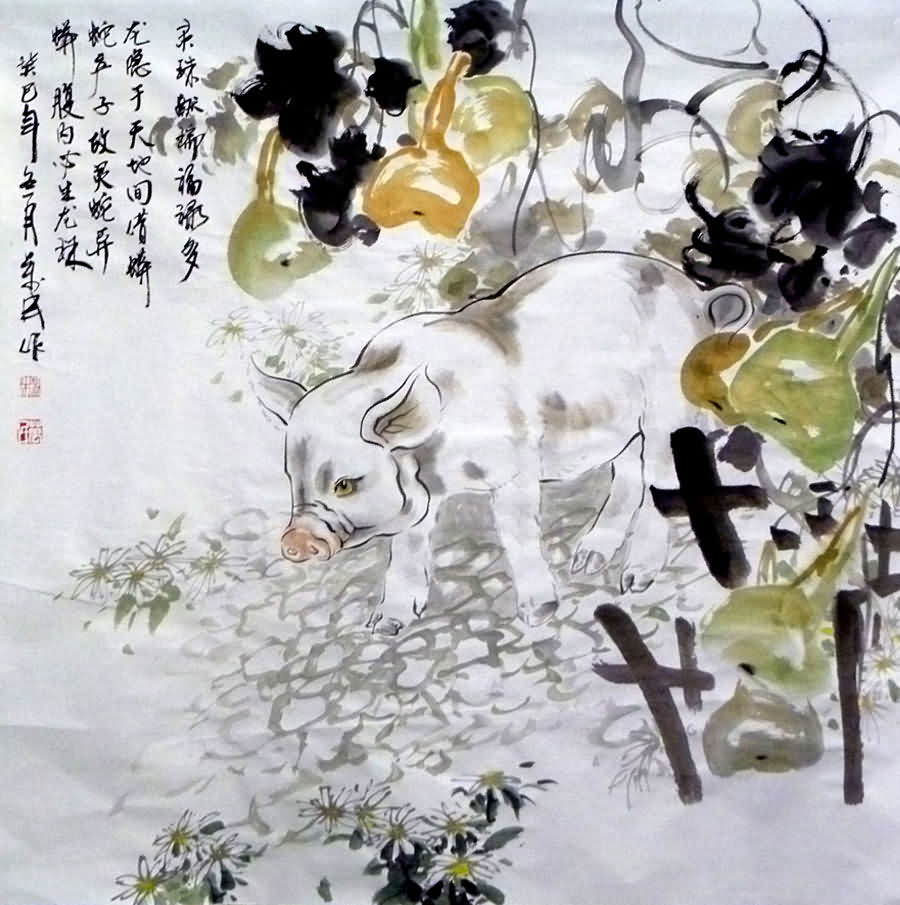 灵珠献瑞福禄多
龙隐于天地间借蟒
蛇产子故灵蛇异
蟒腹内必生龙珠
癸巳年五月 民作